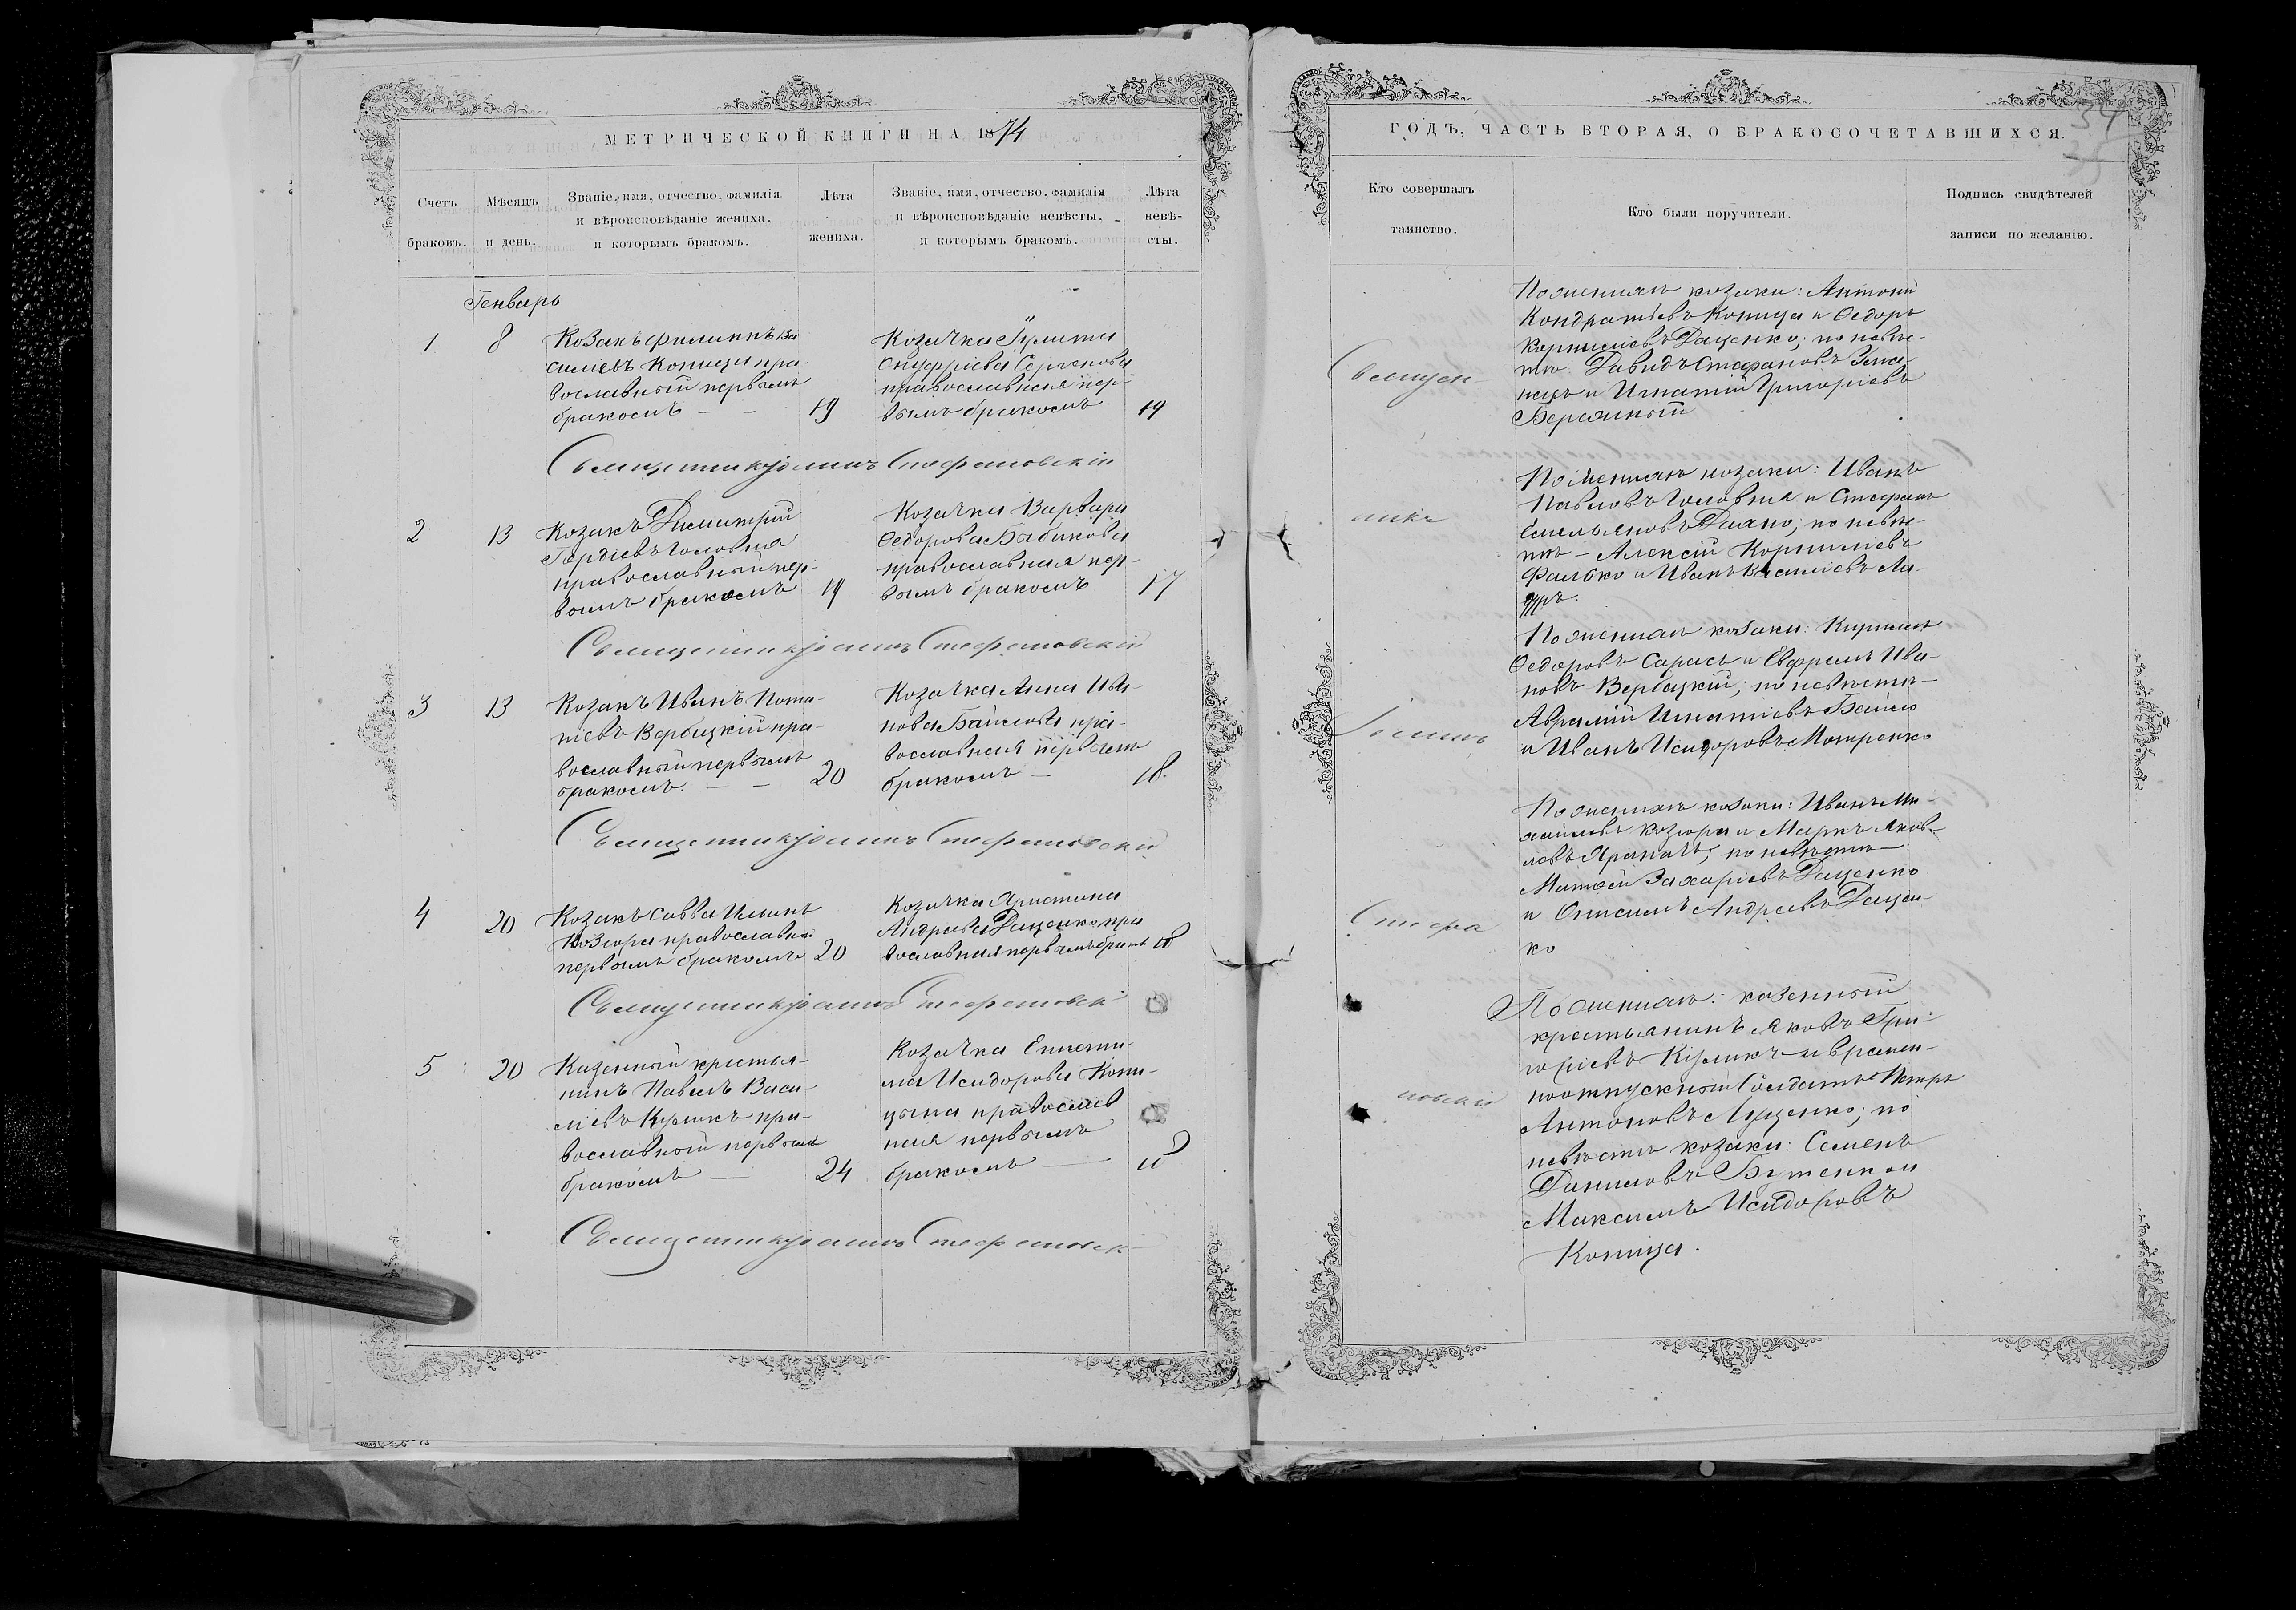 МЕТРИЧЕСКОЙ КНИГИ НА 1874
Счетъ браковъ.
Мѣсяцъ и день.
Званіе, имя, отчество, фамилія и вѣроисповѣданіе жениха. и которымъ бракомъ.
Лѣта жениха.
Званіе, имя, отчество, фамилія и вѣроисповѣданіе невѣсты, и которымъ бракомъ.
Лѣта невѣ-сты.
Генварь
1
8
Козакъ Филиппъ Ва
силіевъ Копица пра-
вославный первымъ
бракомъ — —
19
Козачка Іулита
Онуфріева Сергѣнкова
православная пер-
вымъ бракомъ
19
Священникъ Іоаннъ Стефановскій
2
13
Козакъ Димитрій
Гордіевъ Головня
православный пер-
вымъ бракомъ
19
Козачка Варвара
Ѳедорова Бабикова
православная пер-
вымъ бракомъ
17
Священникъ Іоаннъ Стефановскій
3
13
Козакъ Иванъ Пота-
піевъ Вербицкій пра-
вославный первымъ
бракомъ. — —
20
Козачка Анна Ива-
нова
пра-
вославная первымъ
бракомъ —
18.
Священникъ Іоаннъ Стефановскій
4
20
Козакъ Савва
Козюра православный
первымъ бракомъ
20
Козачка Христина
Андреева Даценко пра
вославная первымъ бракомъ
18
Священникъ Іоаннъ Стефановскій
5
20
Казенный крестья-
нинъ Павелъ Васи-
ліевъ Куликъ пра-
вославный первымъ
бракомъ —
24
Козачка Еписти-
мія Исидорова Копи-
цына православ
ная первымъ
бракомъ —
18
Священникъ Іоаннъ Стефановскій
ГОДЪ, ЧАСТЬ ВТОРАЯ, О БРАКОСОЧЕТАВШИХСЯ.
34
35
Кто совершалъ таинство.
Кто были поручители.
Подпись свидѣтелей записи по желанію.
Священ
никъ
Іоаннъ
Стефа
новскій
По женихѣ козаки: Антоній
Кондратіевъ Копица и Ѳедоръ
Корниліевъ Даценко; по невѣс-
тѣ Давидъ Стефановъ
и Игнатій Григоріевъ
Бережный
По женихѣ козаки: Иванъ
Павловъ Головня и Стефанъ
Емельяновъ
по невѣс-
тѣ — Алексій Корниліевъ
Фалько и Иванъ Василіевъ Ла-
По женихѣ козаки: Кириллъ
Ѳедоровъ Сарась и Евфремъ Ива-
новъ Вербицкій; по невѣстѣ —
Аврамій Игнатіевъ
и Иванъ Исидоровъ Мотренко
По женихѣ козаки: Иванъ Ми-
хаиловъ Козюра и Маркъ Яков-
левъ
по невѣстѣ —
Матѳей Захаріевъ Даценко
и Онисимъ Андреевъ Дацен-
ко
По женихѣ: казенный
крестьянинъ Яковъ Гри-
горіевъ Куликъ и времен-
ноотпускной Солдатъ Петръ
Антоновъ Луценко; по
невѣстѣ козаки: Семенъ
Даниловъ Бутенко и
Максимъ Исидоровъ
Копица.